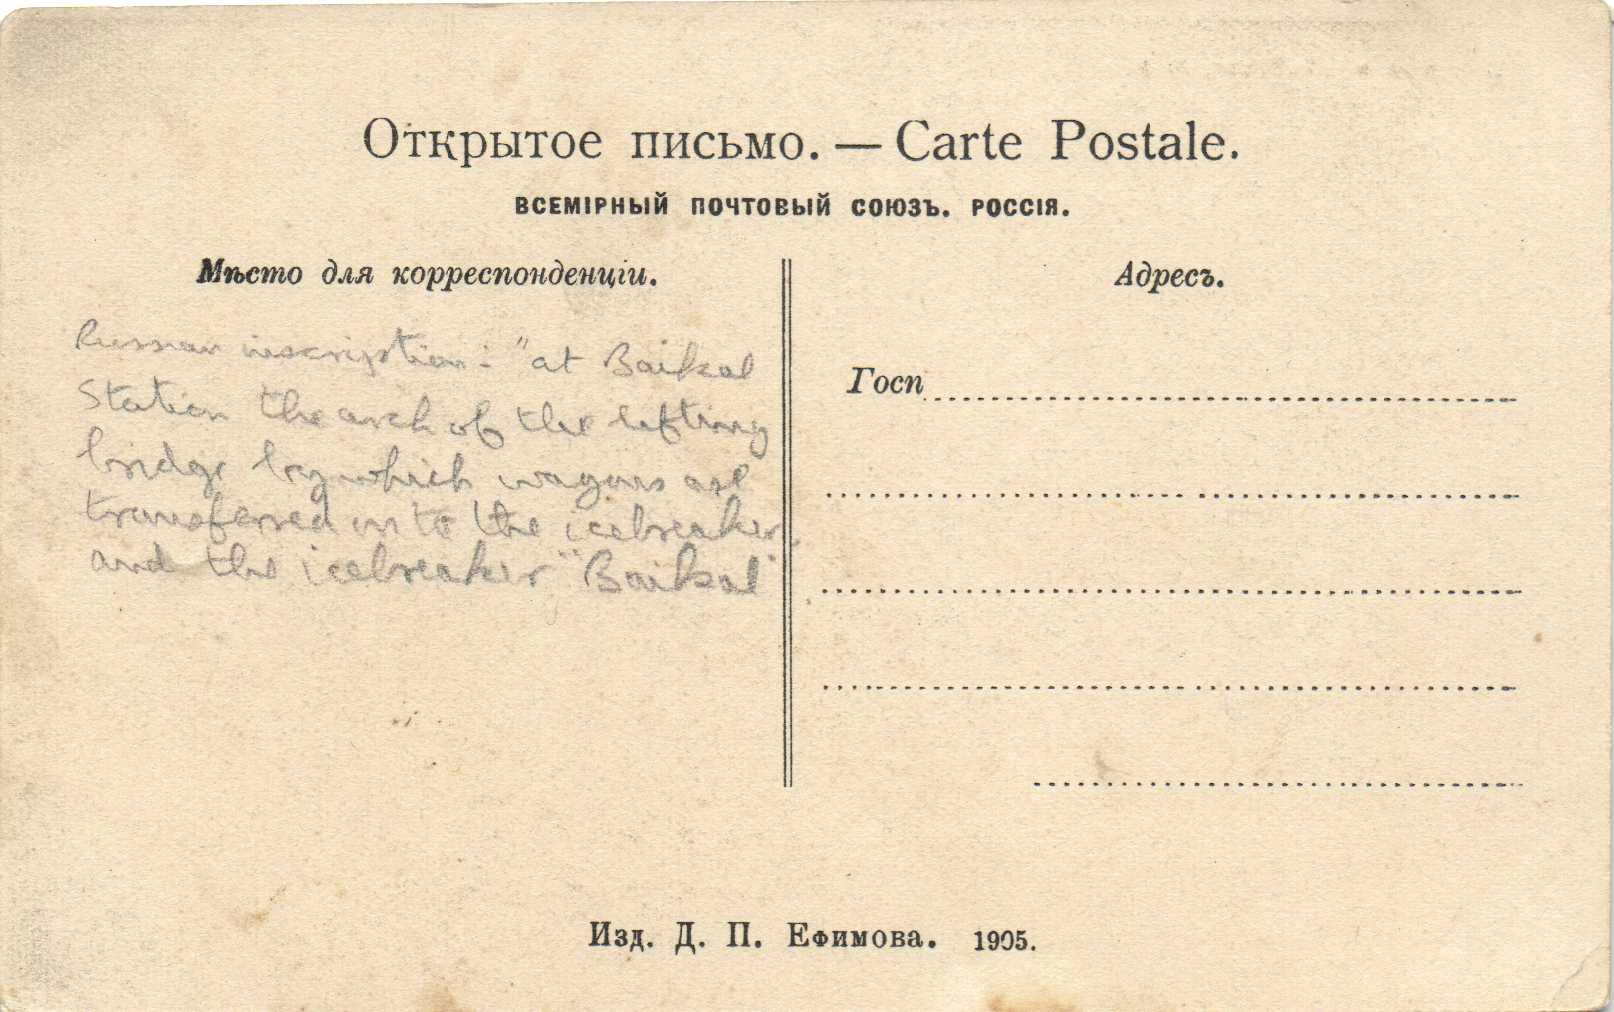 Открытое письмо. — Carte Postale.
ВСЕМІРНЫЙ ПОЧТОВЫЙ СОЮЗЪ. РОССІЯ.
Мѣсто для корреспонденціи.
Russian inscription: "at Baikal
Station the arch of the lifting
bridge by which wagons are
transferred in to the icebreaker,
and the icebreaker "Baikal"
Адресъ.
Госп
Изд. Д. П. Ефимова. 1905.